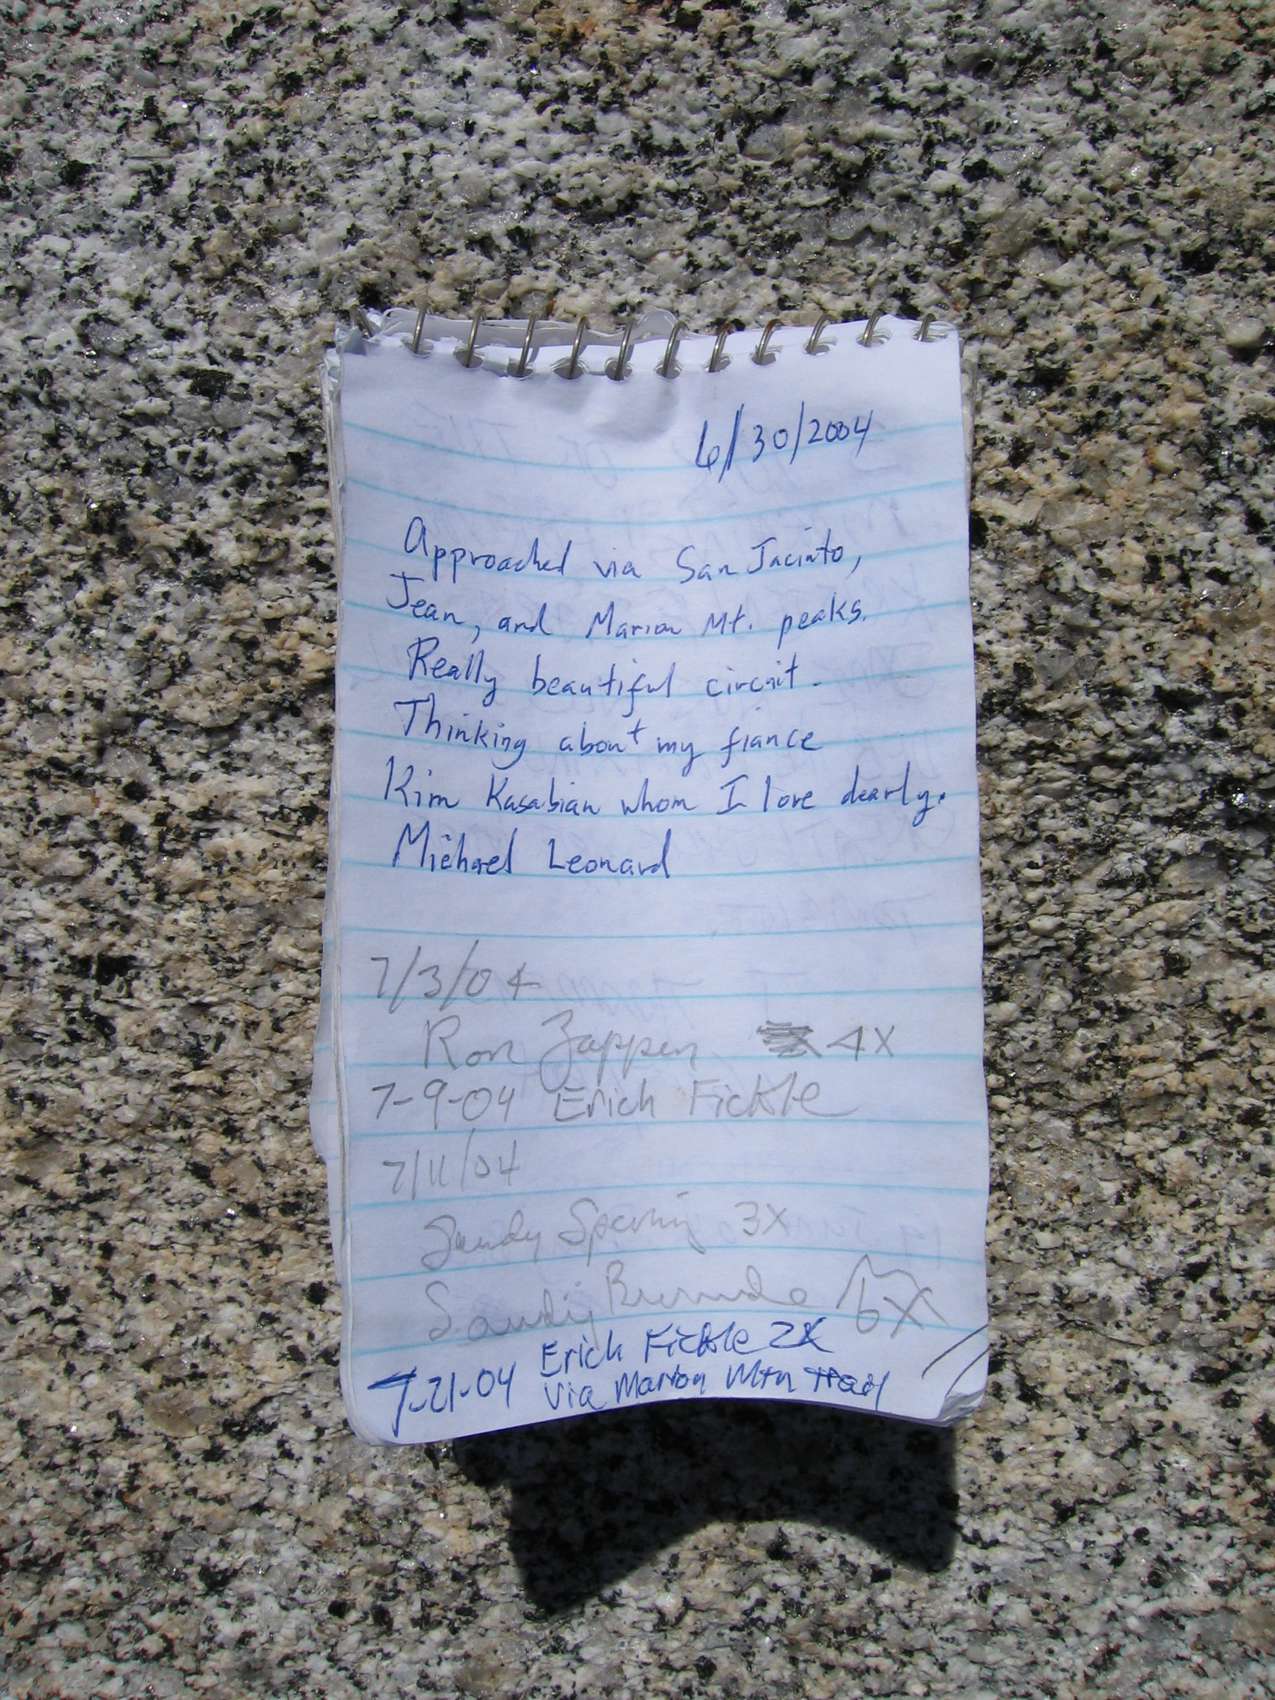 6/30/2004
Approached via San Jacinto,
Jean, and Marion Mt. peaks.
Really beautiful circuit.
Thinking about my fiance
Kim Kasabian whom I love dearly.
Michael Leonard
7/3/04
Ron Zappen 4X
7-9-04 Erich Fickle
7/11/04
Sandy 3X
6X
Erich Fickle 2X
7-21-04 Via Marion Mtn Trail